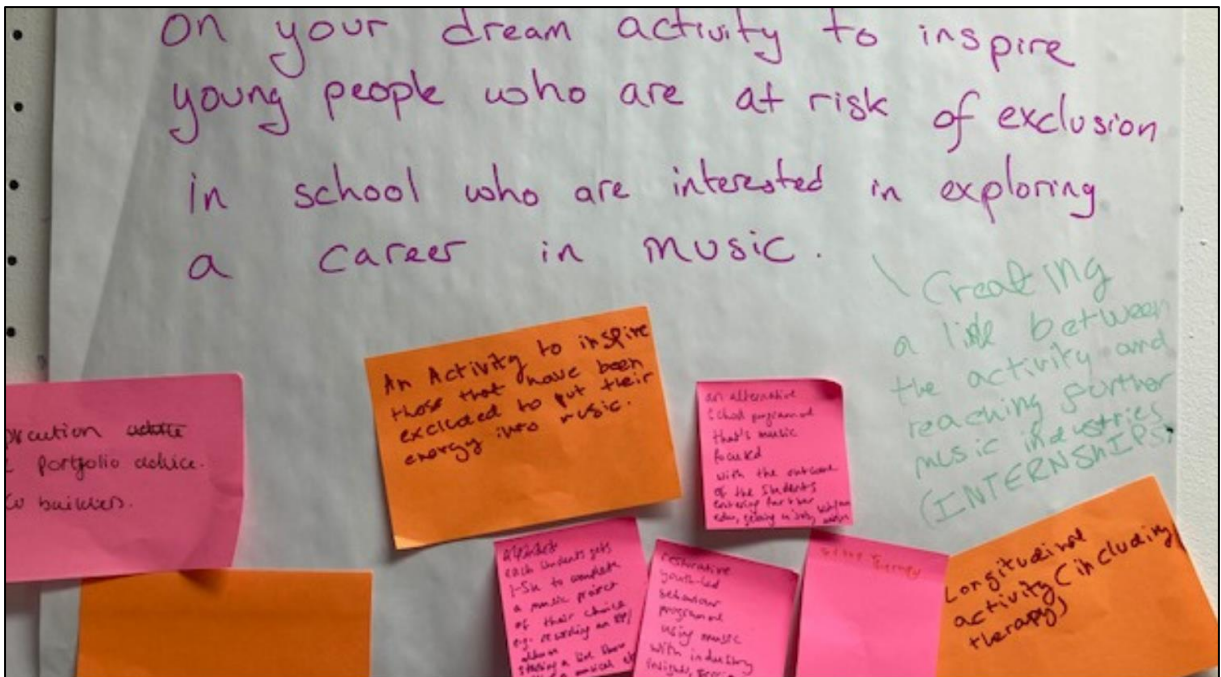 On your dream activity to inspire
young people who are at risk of exclusion
in school who are interested in exploring
a career in music.
\ Creating
a link between
the activity and
reaching further
music industries
(INTERNSHIPS)
An Activity to inspire
those that have been
excluded to put their
energy into music.
an alternative
school programme
that's music
focused
with the outcome
of the students
entering further
edu, getting
portfolio advice.
builders.
each students gets
to complete
a music project
of their choice
e.g. recording an EP/
album
a live show
musical
restorative
youth-led
behaviour
programme
using music
with industry
insights,
therapy
Longitudinal
activity (including
therapy)